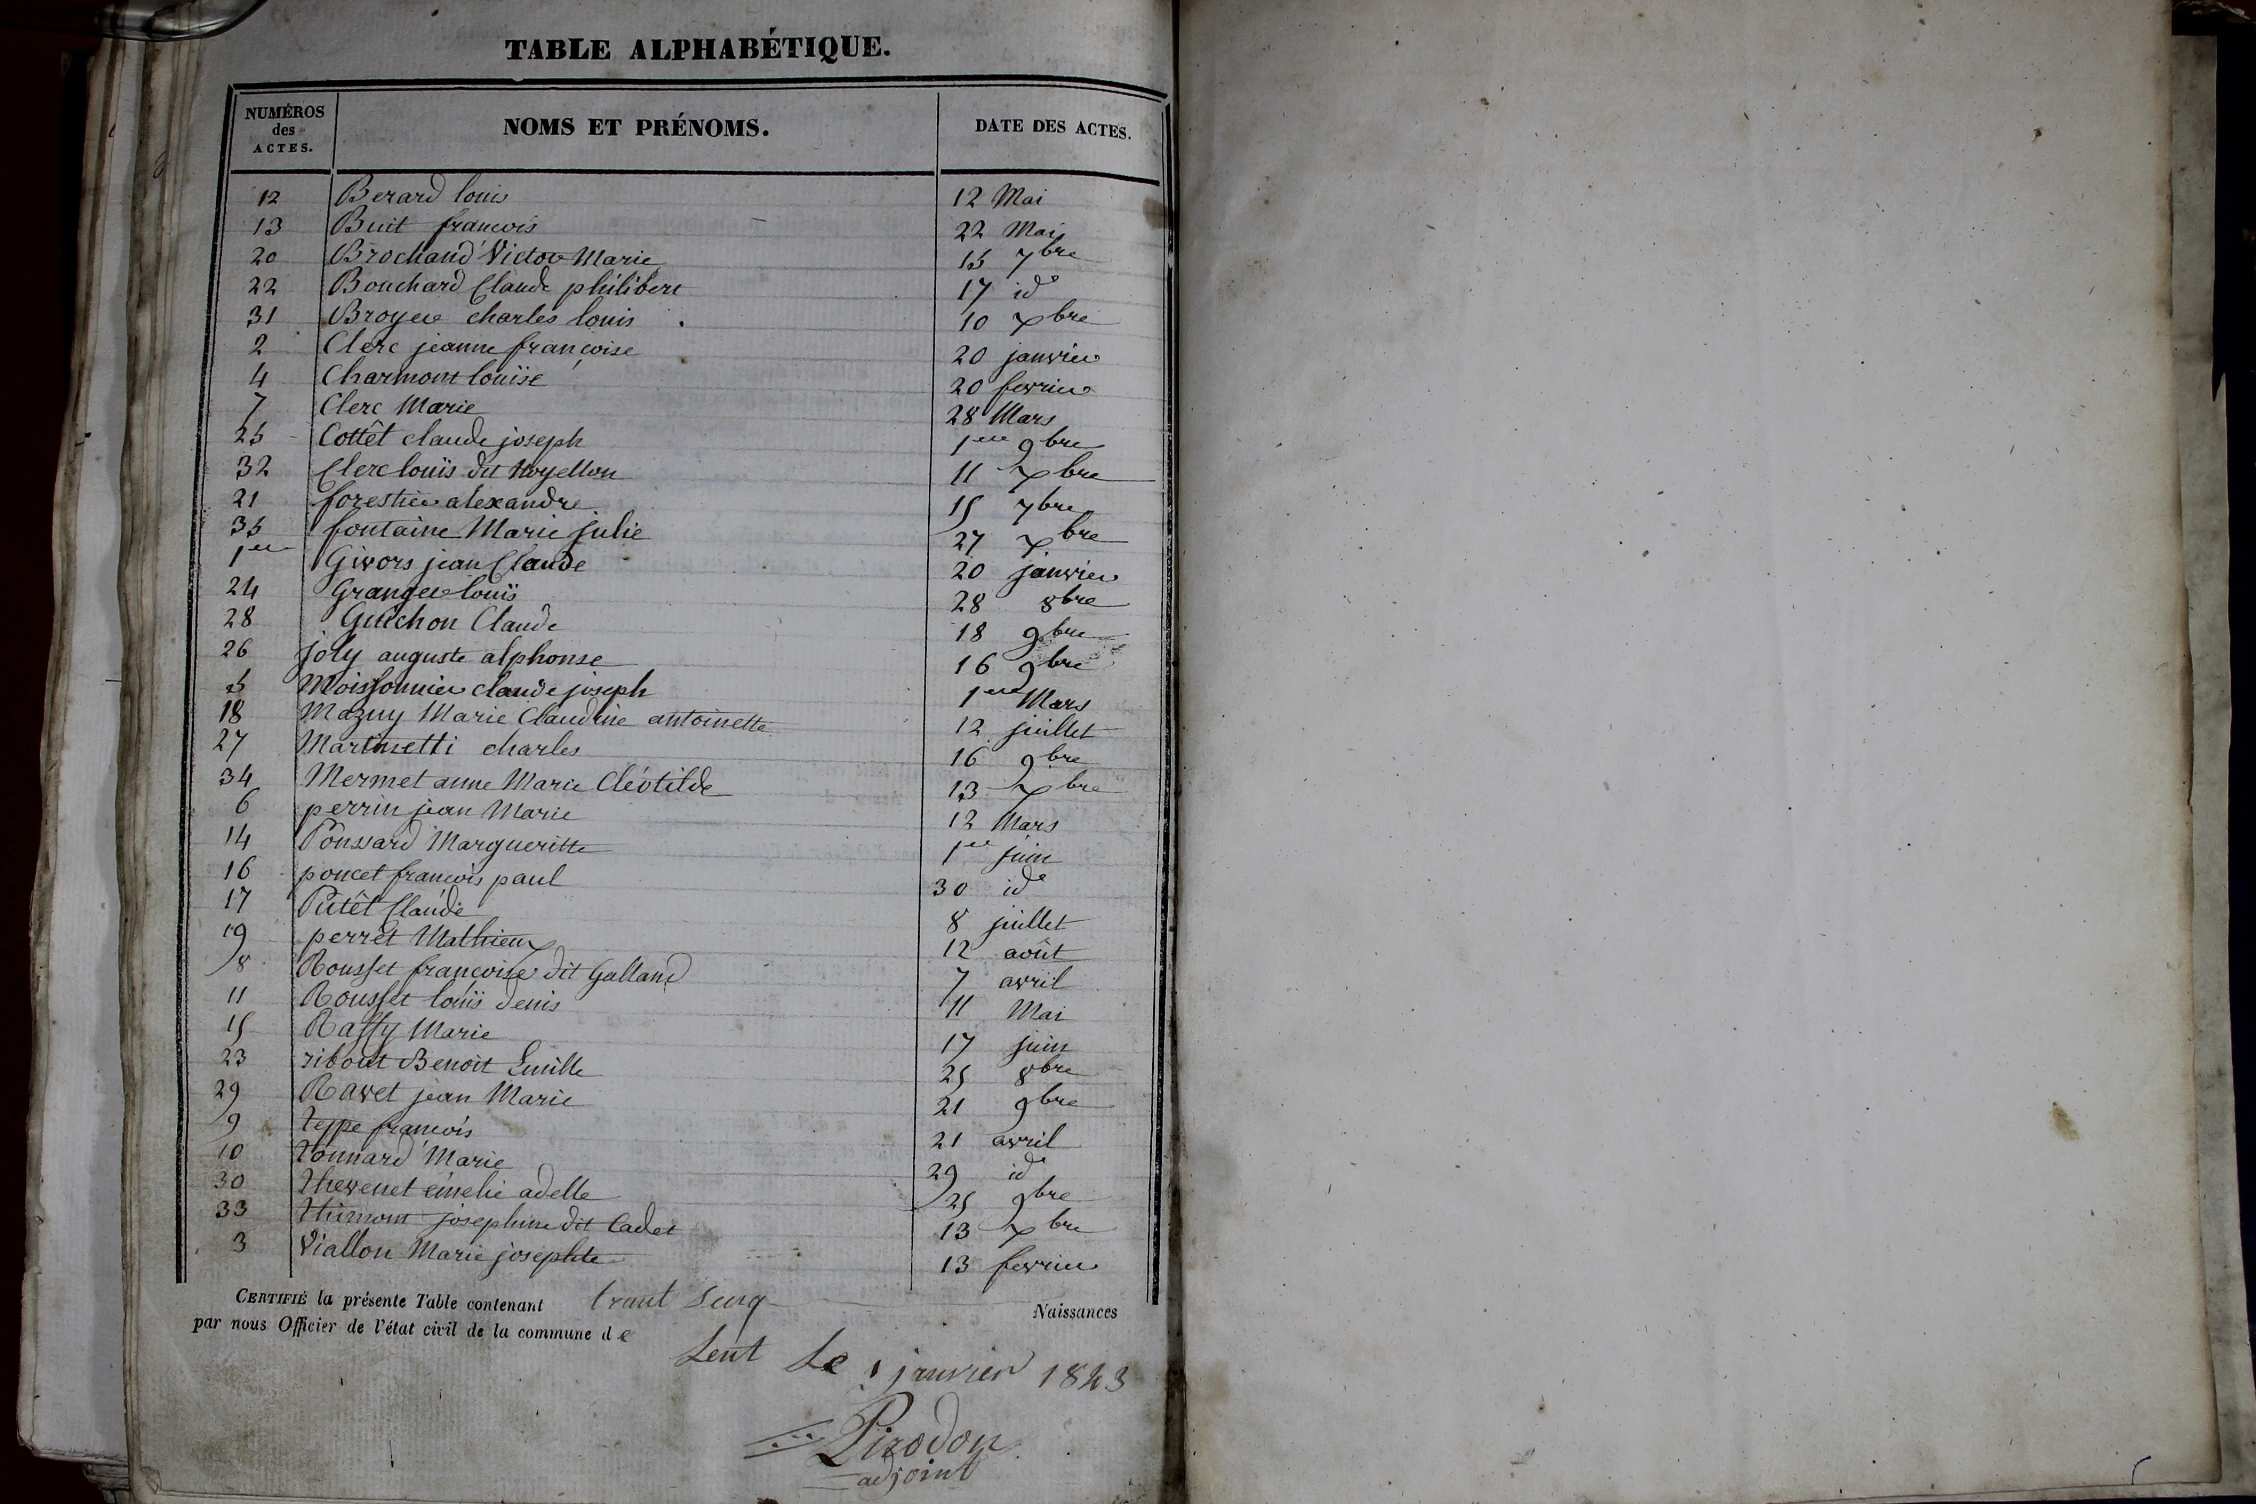 TABLE ALPHABÉTIQUE.
NUMÉROS des ACTES. NOMS ET PRÉNOMS. DATE DES ACTES.
12 Berard louis 12 Mai
13 Buit francois 22 Mai
20 Brochand Victor Marie 15 7bre
22 Bouchard Claude philibert 17 id
31 Broyer charles louis 10 xbre
2 Clerc jeanne françoise 20 janvier
4 Charmont louise 20 fevrier
7 Clerc Marie 28 Mars
25 Cottêt claude joseph 1er 9bre
32 Clerc louis dit Noyellon 11 xbre
21 forestier alexandre 15 7bre
35 fontaine Marie julie 27 xbre
1er Givors jean Claude 20 janvier
24 Granger louis 28 8bre
28 Guichon Claude 18 9bre
26 joly auguste alphonse 16 9bre
5 Moissonnier claude joseph 1er Mars
18 Mazuy Marie Claudine antoinette 12 juillet
27 Martinetti charles 16 9bre
34 Mermet anne Marie Cléotilde 13 xbre
6 perrin jean Marie 12 Mars
14 Poussard Margueritte 1er juin
16 poncet francois paul 30 id
17 Putêt Claude 8 juillet
19 perret Mathieux 12 août
8 Rousset françoise dit Galland 7 avril
11 Rousset louis denis 11 Mai
15 Raffy Marie 17 juin
23 ribout Benoit Emille 25 8bre
29 Ravet jean Marie 21 9bre
9 teppe francois 21 avril
10 tonnard Marie 29 id
30 thevenet émelie adelle 25 9bre
33 josephine dit Cadet 13 xbre
3 Viallon Marie josephte 13 fevrier
CERTIFIÉ la présente Table contenant trant senq Naissances
par nous Officier de l'état civil de la commune de
Lent Le 1 janvier 1843
Pirodon
adjoint